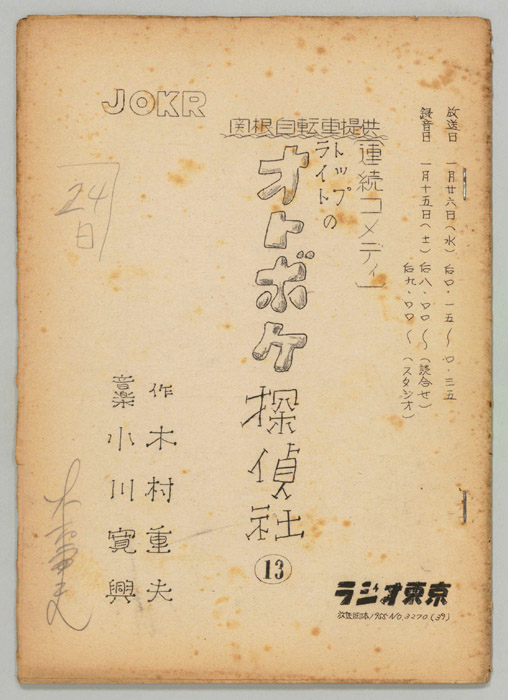 JOKR
関根自転車提供
放送日 一月廿六日(水) 后0・一五〜0・三五
録音日 一月十五日(土) 后八・00〜(読合せ)
后九・00〜(スタジオ)
[連続コメディ]
トップ
ライトの
オトボケ探偵社
⑬
作 木村重夫
音楽 小川寛興
24
日
木村重夫
ラジオ東京
放送台本1955 NO.3270(39)